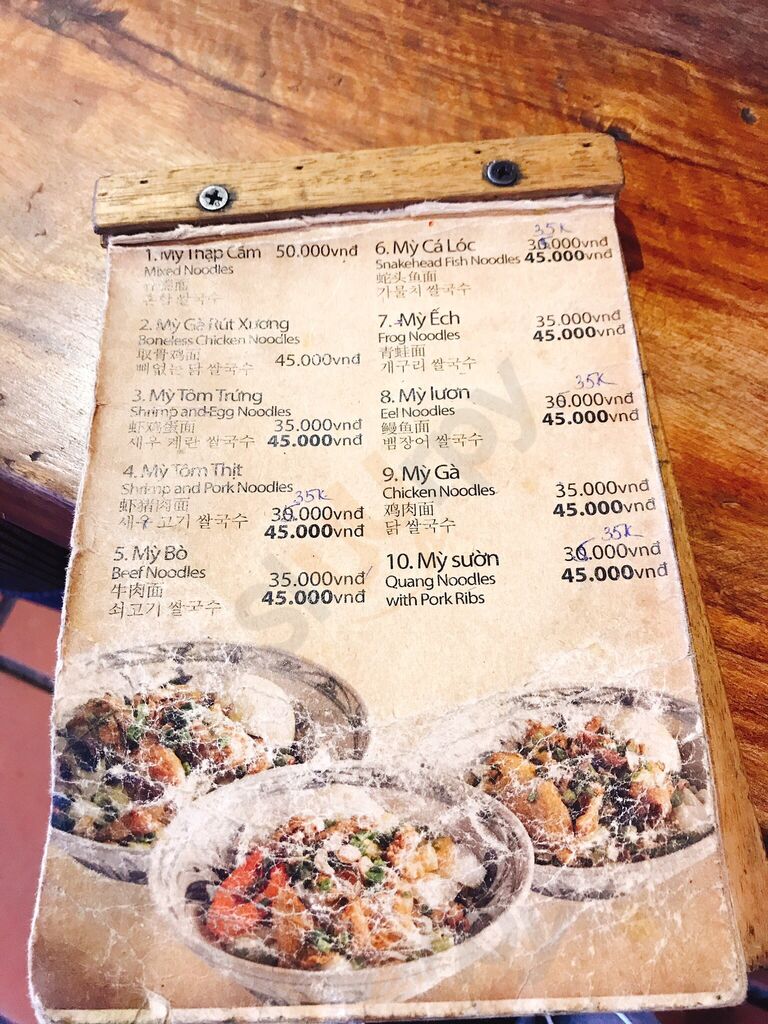 1. Mỳ Thập Cẩm 50.000vnđ
Mixed Noodles
쌀국수
2. Mỳ Gà Rút Xương
Boneless Chicken Noodles
取骨鸡面 45.000vnđ
뼈없는 닭 쌀국수
3. Mỳ Tôm Trứng
Shrimp and Egg Noodles
虾鸡蛋面 35.000vnđ
새우 계란 쌀국수 45.000vnđ
4. Mỳ Tôm Thịt
Shrimp and Pork Noodles
35K
虾猪肉面 30.000vnđ
새우 고기 쌀국수 45.000vnđ
5. Mỳ Bò
Beef Noodles 35.000vnđ
牛肉面 45.000vnđ
쇠고기 쌀국수
35K
6. Mỳ Cá Lóc 30.000vnđ
Snakehead Fish Noodles 45.000vnđ
蛇头鱼面
가물치 쌀국수
7. Mỳ Ếch 35.000vnđ
Frog Noodles 45.000vnđ
青蛙面
개구리 쌀국수
35K
8. Mỳ lươn 30.000vnđ
Eel Noodles 45.000vnđ
鳗鱼面
뱀장어 쌀국수
9. Mỳ Gà
Chicken Noodles 35.000vnđ
鸡肉面 45.000vnđ
닭 쌀국수
35K
10. Mỳ sườn 30.000vnđ
Quang Noodles 45.000vnđ
with Pork Ribs